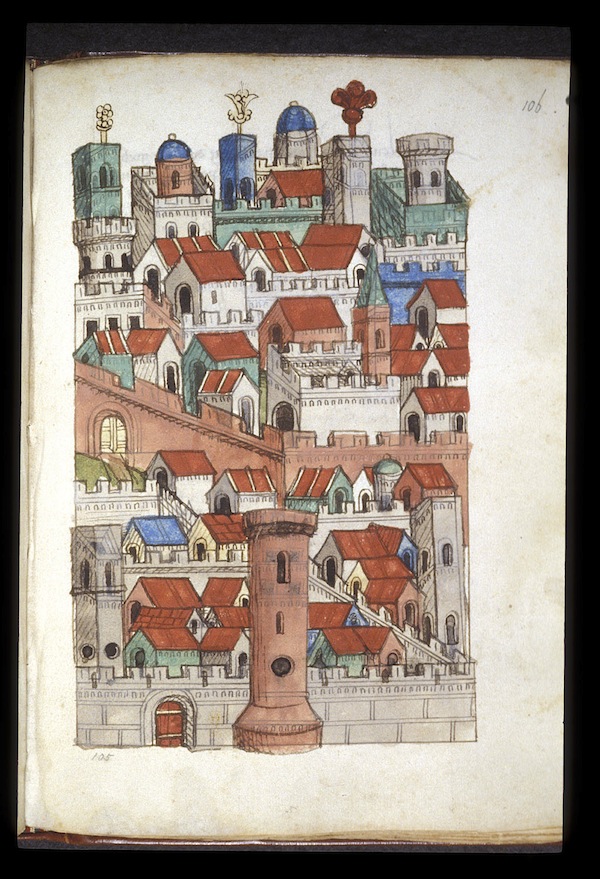 106.
105